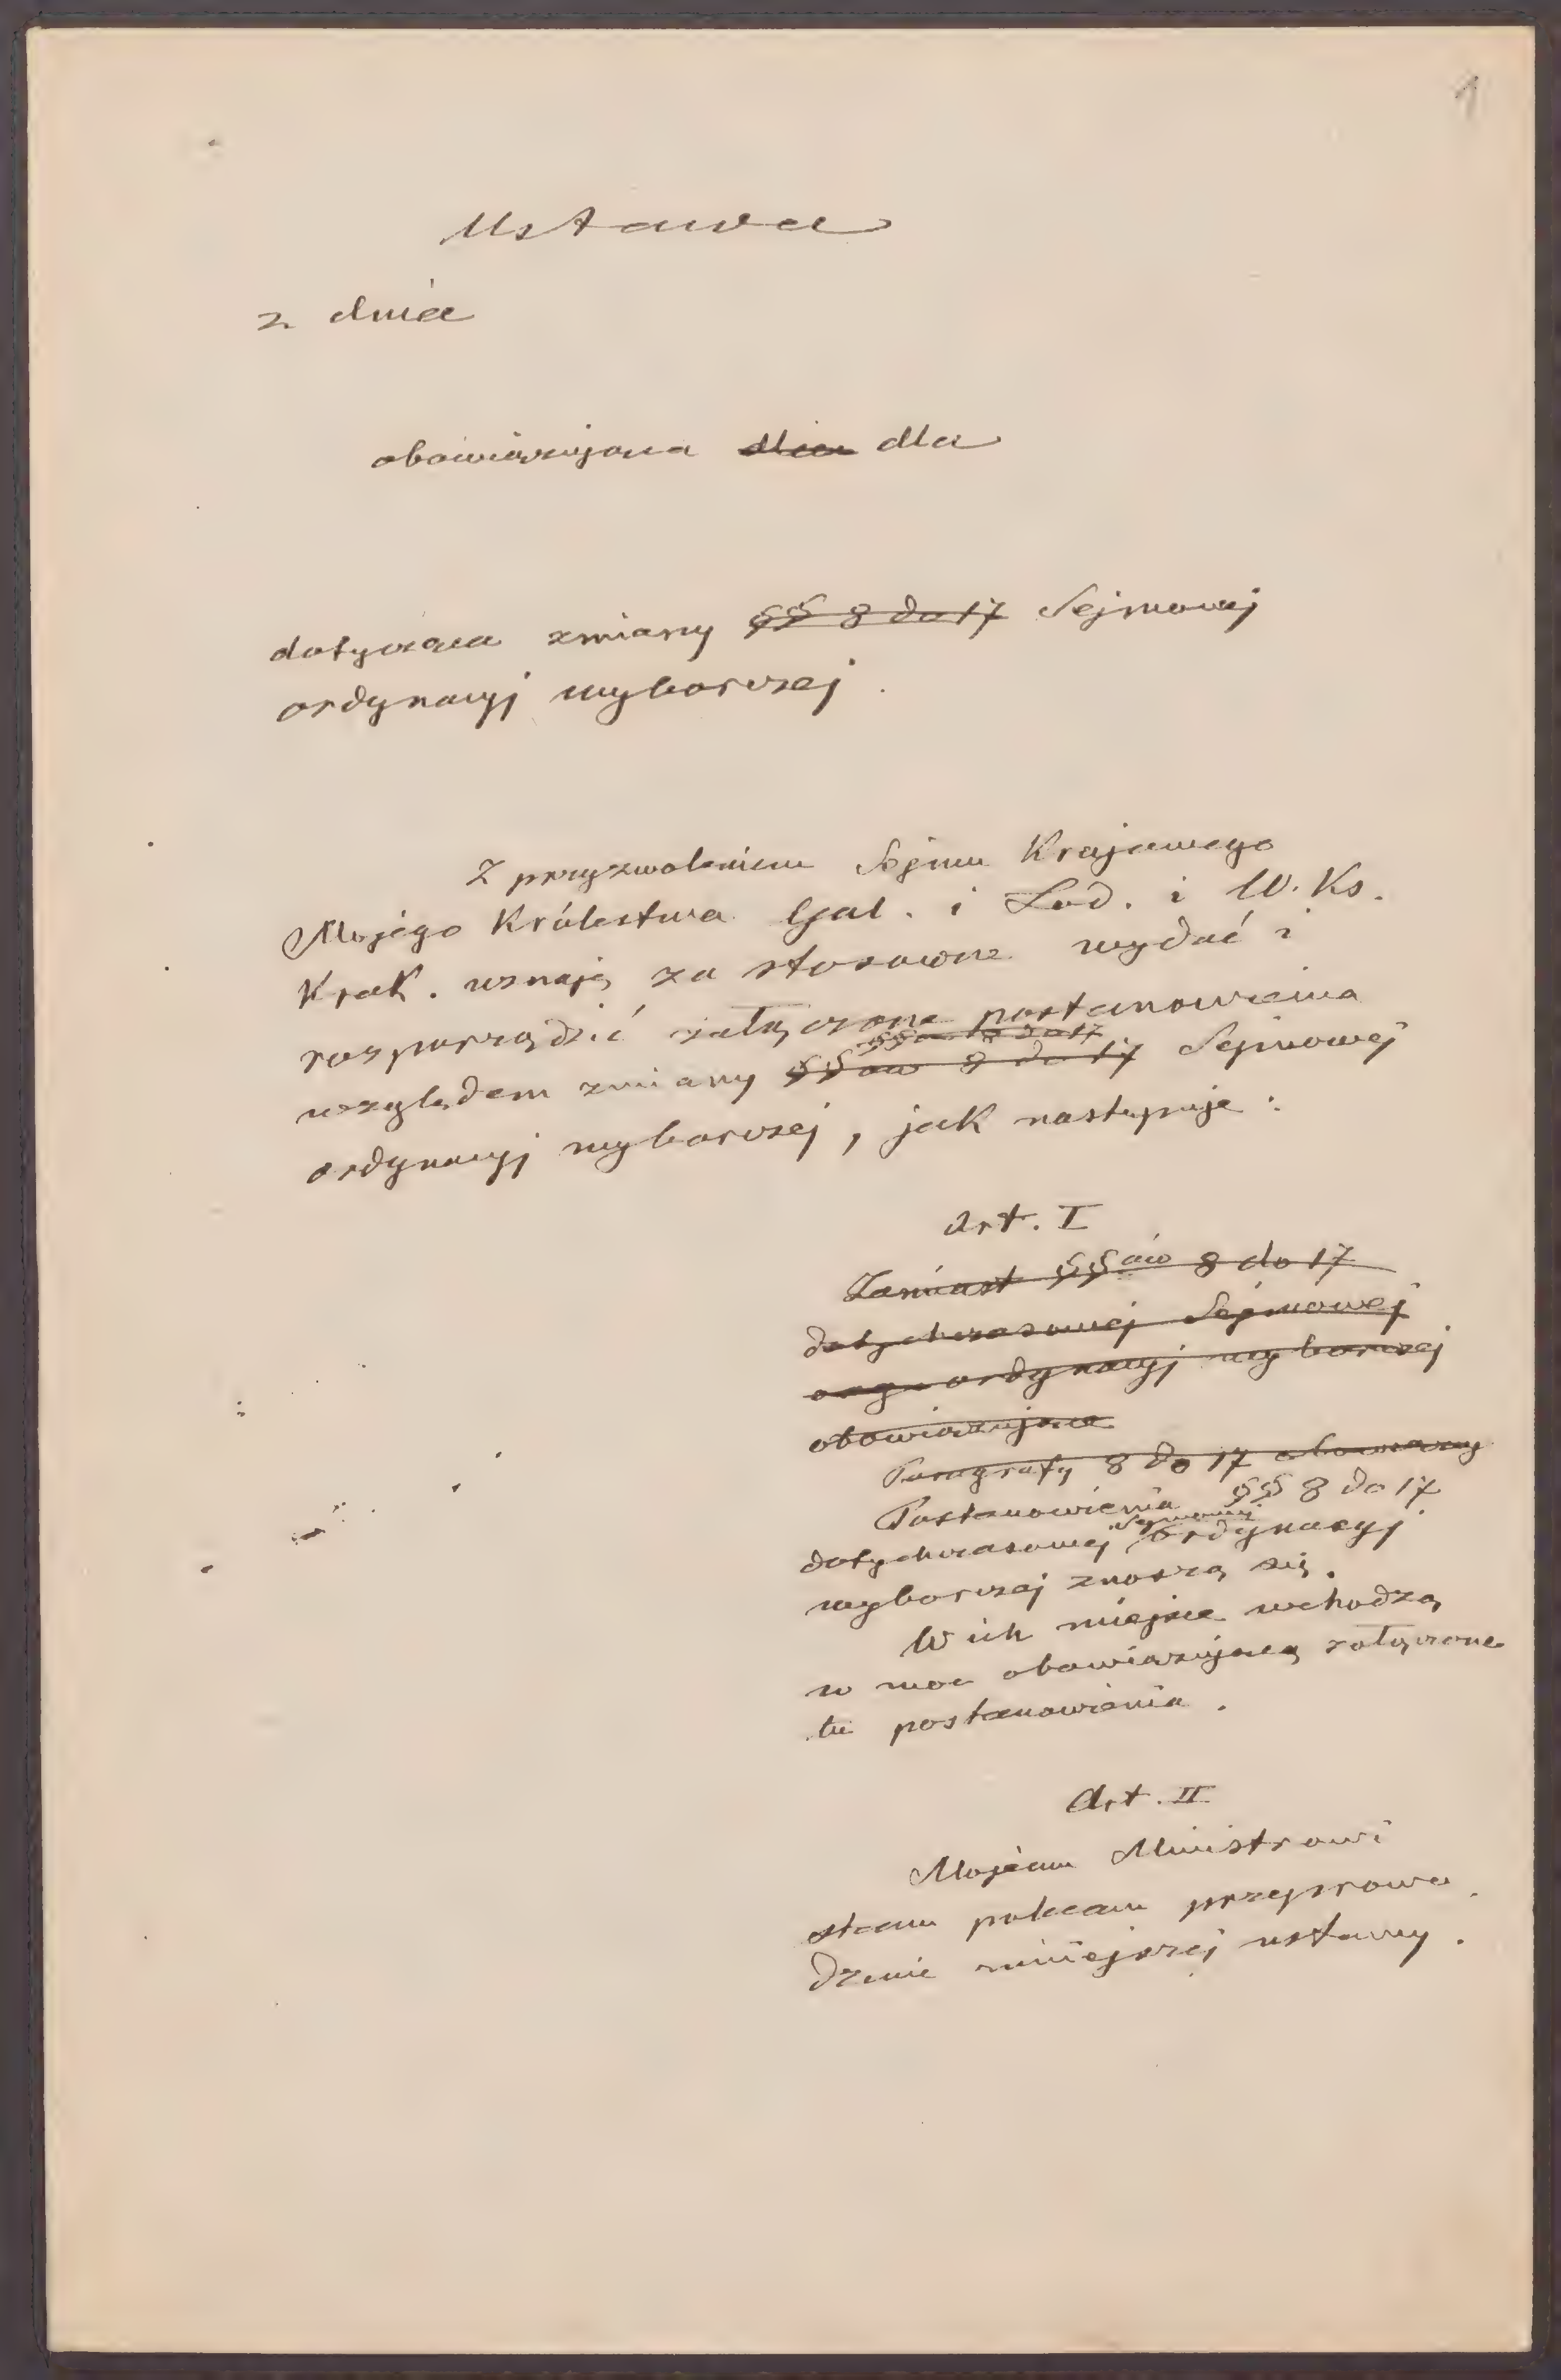 1
Ustawa
z dnia
obowiązująca dla dla
dotycząca zmiany §§ 8 do 17 Sejmowej
ordynacyj wyborczej.
Z przyzwoleniem Sejmu Krajowego
Mojego Królestwa Gal. i Lod. i W. Ks.
Krak. uznaję za stosowne wydać i
rozporządzić załączone postanowienia
§§ów 8 do 17
względem zmiany §§ów 8 do 17 Sejmowej
ordynacyj wyborczej, jak następuje:
Art. I
Zamiast §§ów 8 do 17
dotychczasowej Sejmowej
ordynacyj wyborczej
obowiązujące
Paragrafy 8 do 17
Postanowienia §§ 8 do 17
Sejmowej
dotychczasowej ordynacyj
wyborczej znoszą się.
W ich miejsce wchodzą
w moc obowiązującą załączone
tu postanowienia.
Art. II
Mojemu Ministrowi
stanu polecam przeprowa
dzenie niniejszej ustawy.